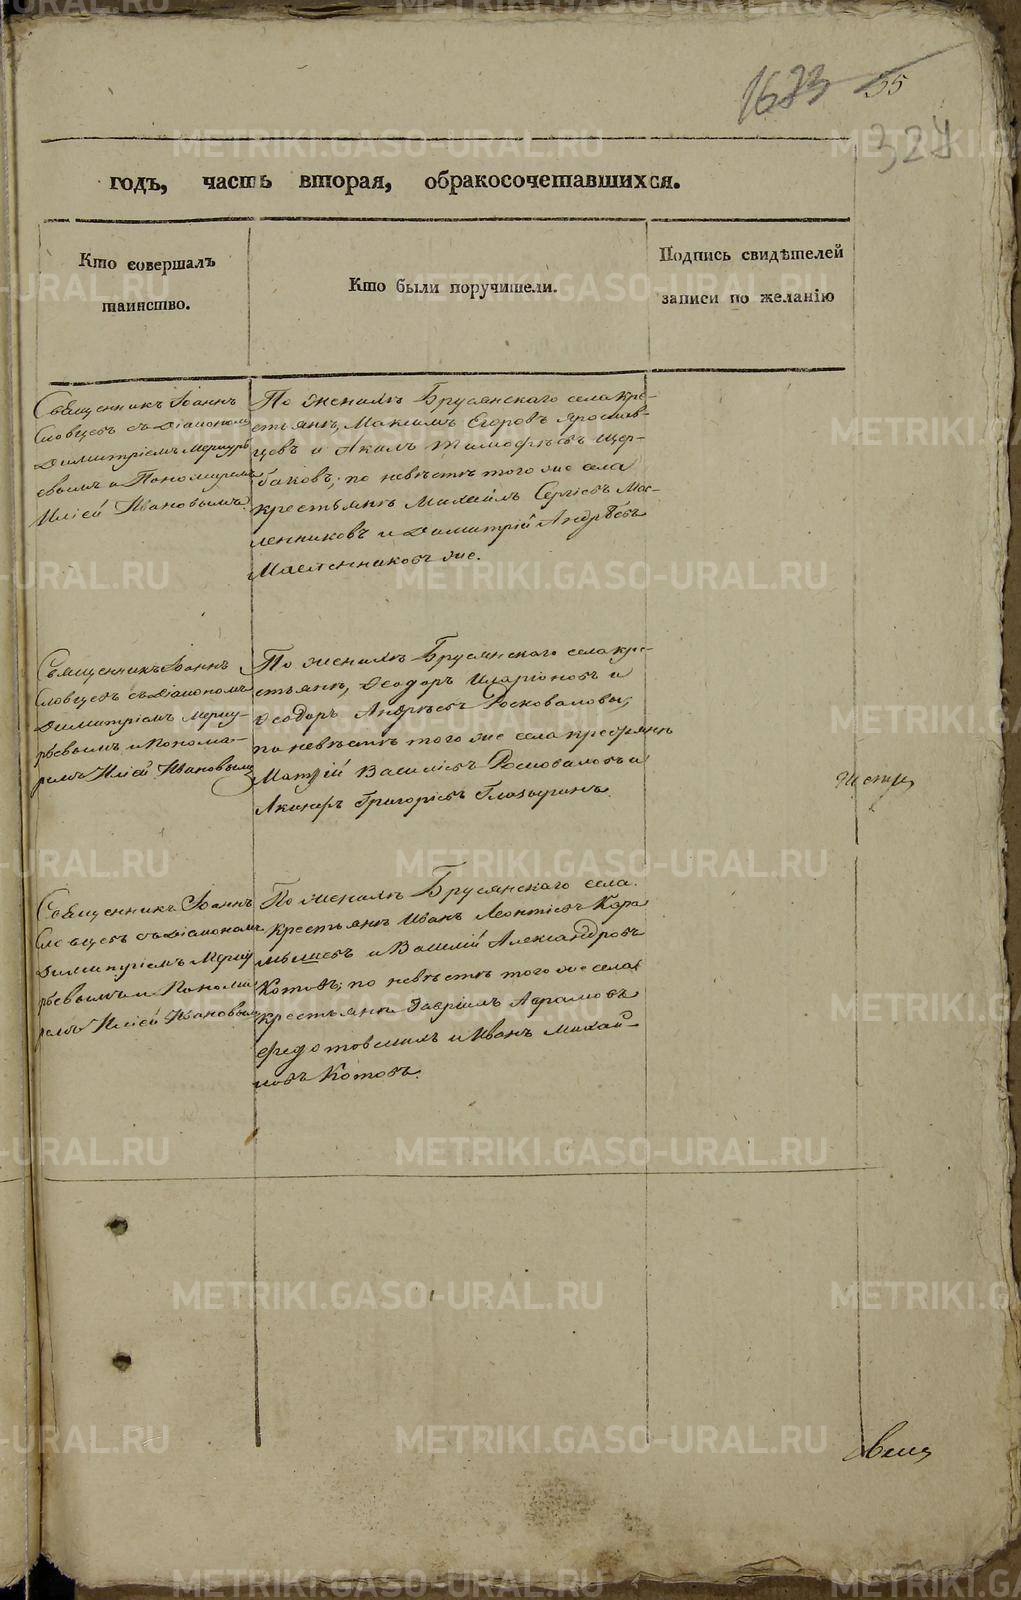 1673 55
329
годъ, часть вторая, обракосочетавшихся.
Кто совершалъ
таинство.
Кто были поручители.
Подпись свидѣтелей
записи по желанію
Священникъ Іоаннъ
Словцевъ съ Діакономъ
Димитріемъ Меркурь
евымъ и Пономаремъ
Иліей Ивановымъ.
По женихѣ Брусянскаго села кре-
стьянѣ, Максимъ Егоровъ Ярослав-
цевъ и Акимъ Тимофѣевъ Щер-
баковъ; по невѣстѣ того же села
крестьянѣ Михаилъ Сергіевъ Мас-
ленниковъ и Димитрій Андрѣевъ
Масленниковъ же.
Священникъ Іоаннъ
Словцевъ съ Діакономъ
Димитріемъ Мерку-
рьевымъ и Понома-
ремъ Иліей Ивановымъ
По женихѣ Брусянскаго села кре-
стьянѣ, Ѳеодоръ Иларіоновъ и
Ѳеодоръ Андрѣевъ Росковаловы;
по невѣстѣ того же села крестьянѣ
Матфій Василіевъ Росковаловъ и
Григоріевъ Глазыринъ.
Священникъ Іоаннъ
Словцевъ съ Діакономъ
Димитріемъ Мерку
рьевымъ и Понома
ремъ Иліей Ивановымъ
По женихѣ Брусянскаго села
крестьянѣ Иванъ Леонтіевъ Кара
мышевъ и Василій Александровъ
Котовъ; по невѣстѣ того же села
крестьянѣ Гавріилъ Аврамовъ
и Иванъ Михай-
ловъ Котовъ.
METRIKI.GASO-URAL.RU